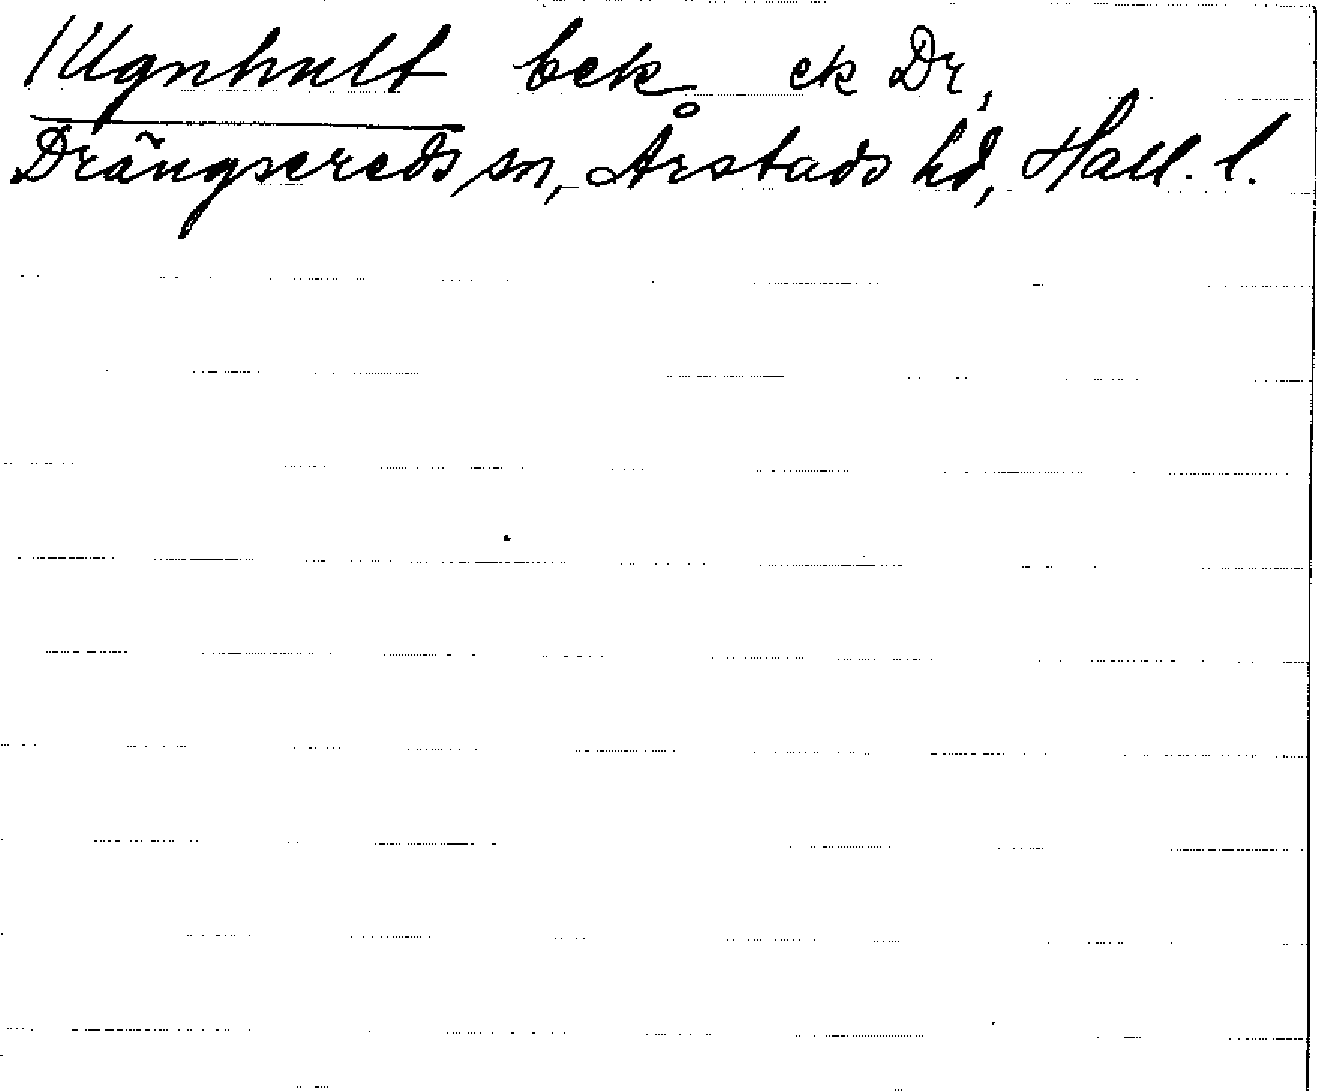 Ugnhult bek. ek Dr,
Drängsereds sn, Årstads hd, Hall. l.